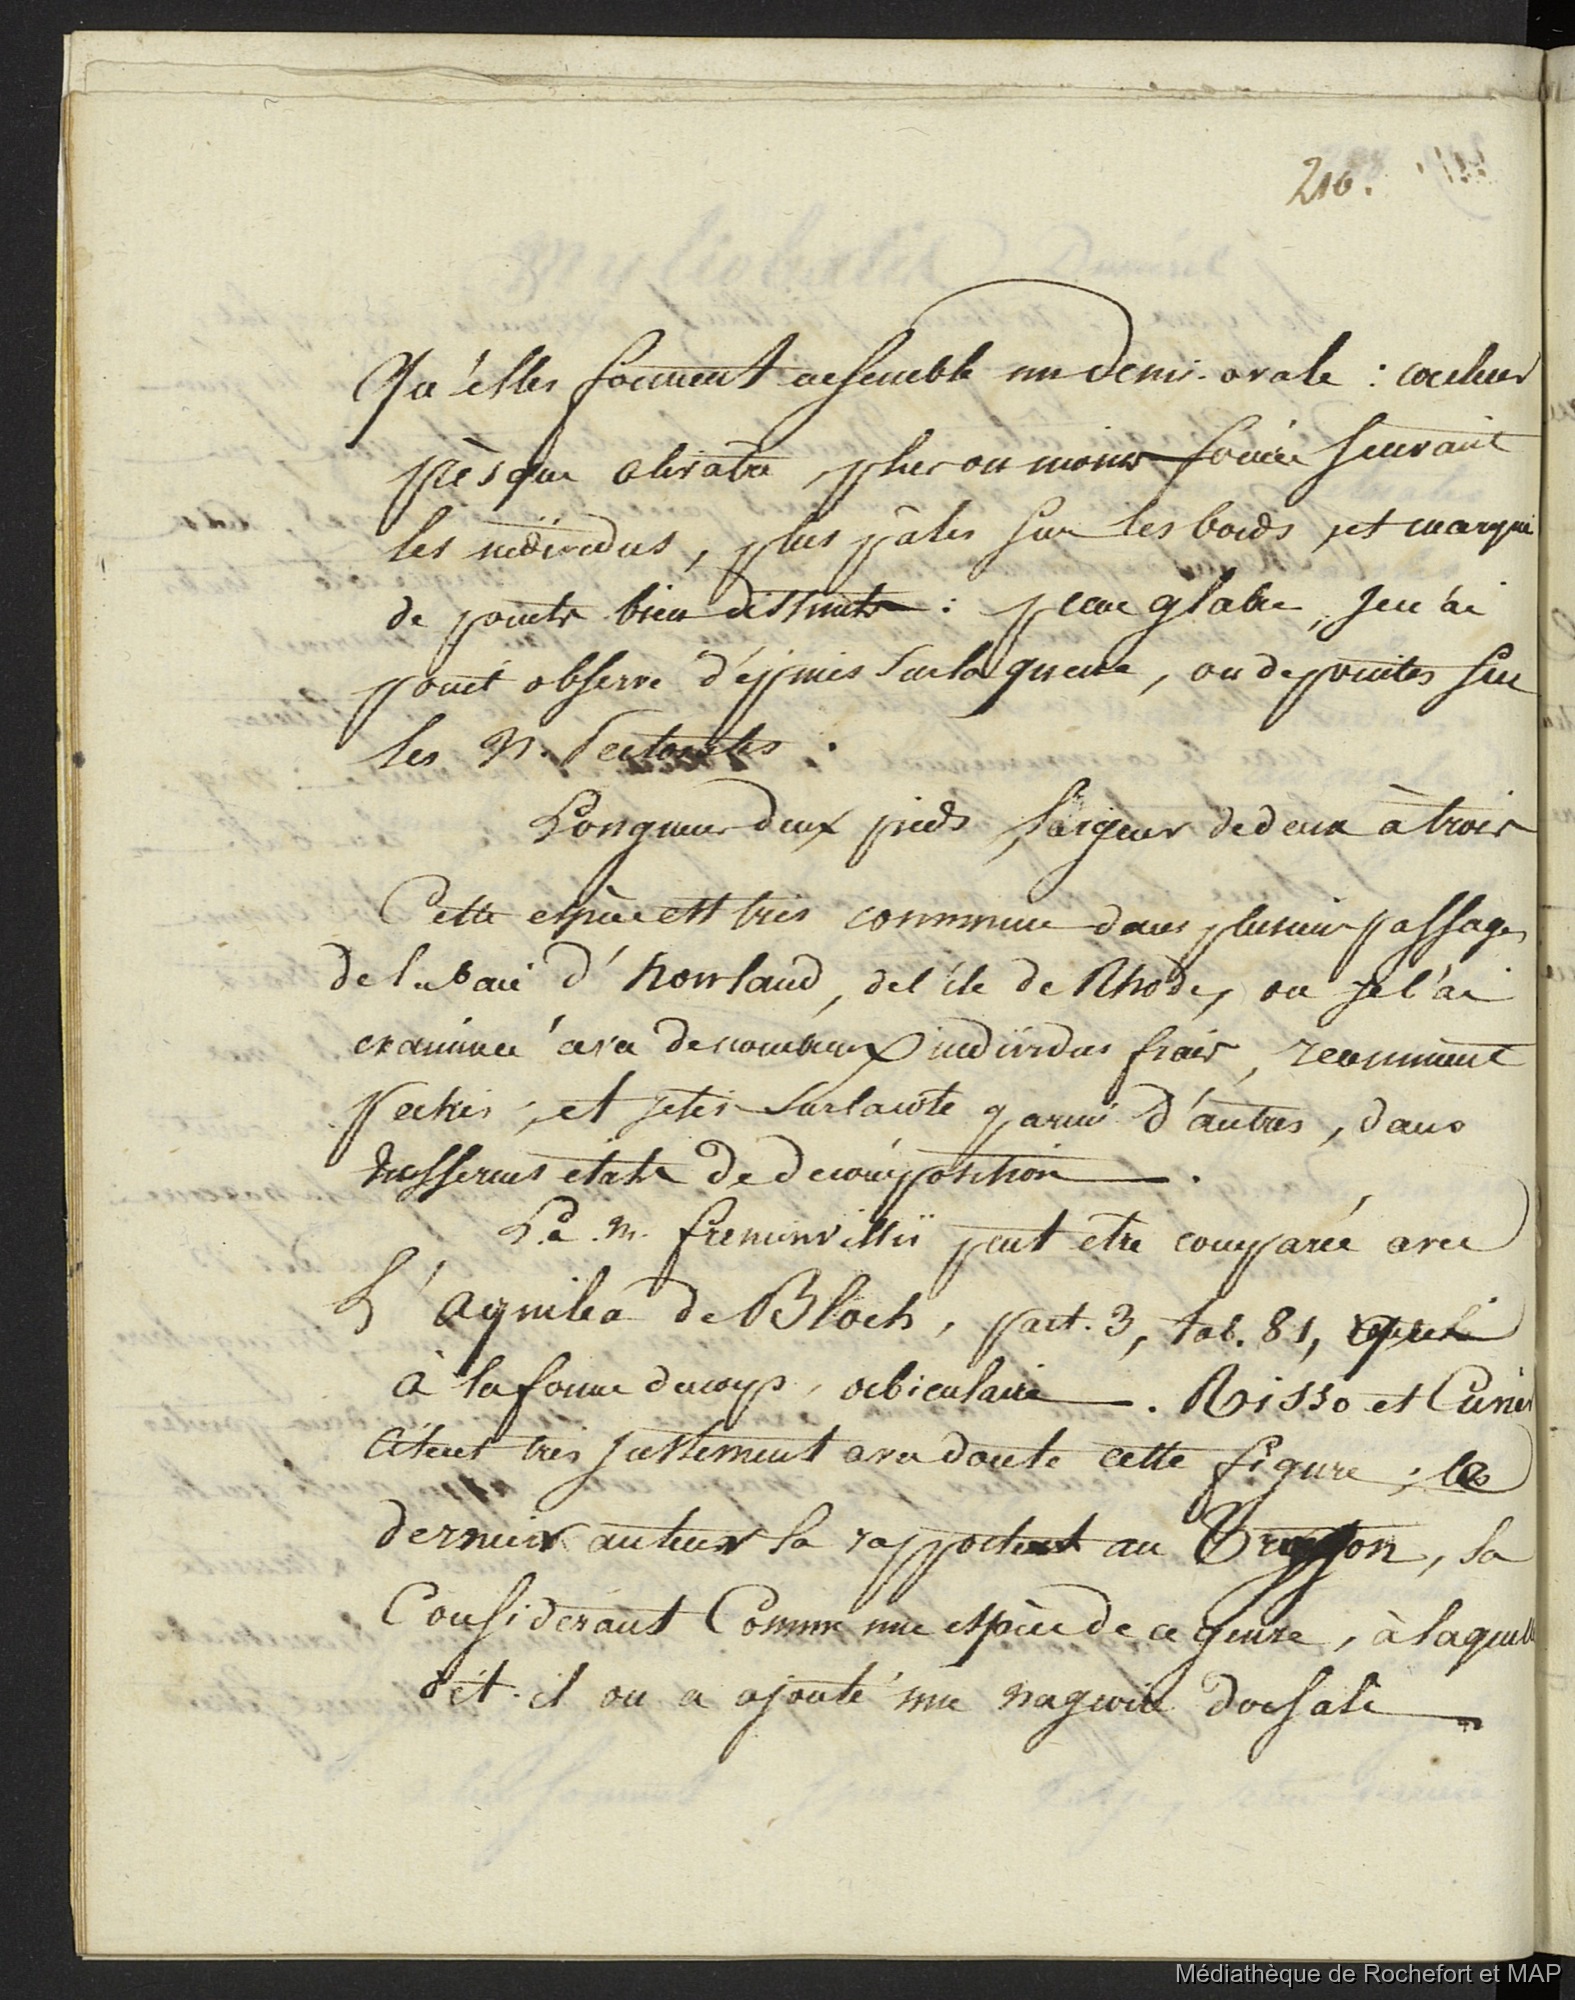 210.
Qu'elles forment ensemble un demi-ovale : couleur
presque olivatre, plus ou moins foncée suivant
les individus, plus pâles sur les bords, et marqué
de points bien distincts : peau glabre, je n'ai
point observé d'épines sur la queue, ou de pointes sur
les n. Pectorales :
Longueur deux pieds, largeur de deux à trois
Cette espèce est très commune dans plusieurs passages
de la baie d'howland, de l'ile de Rhode, ou je l'ai
examinée avec de nombreux individus frais, recemment
pechés ; et jetés sur la cote parmi d'autres, dans
etats de decomposition.
La m. freminvillii peut etre comparée avec
L'aquila de Bloch, part. 3, tab. 81,
à la forme du corps, orbiculaire. Risso et Cuvier
citent très justement avec doute cette figure ; ce
dernier auteur la rapportent au Trygon, la
Considerant Comme une espèce de ce genre, à laquelle
dit-il on a ajouté une nageoire dorsale
Médiathèque de Rochefort et MAP